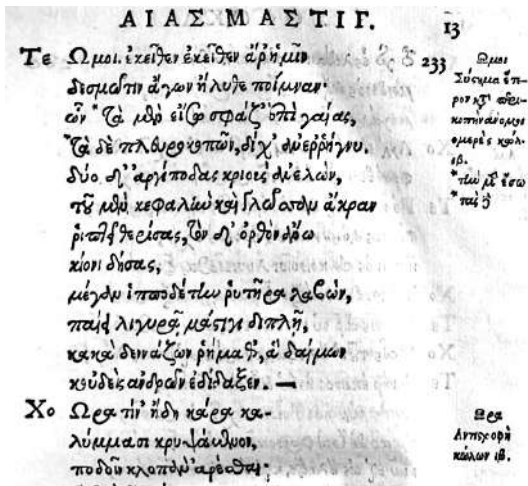 ΑΙΑΣ ΜΑΣΤΙΓ. 13
Τε Ωμοι. ἐκεῖθεν ἐκεῖθεν ἄρ' ἡμῖν
δεσμῶτιν ἄγων ἤλυθε ποίμναν·
ὧν *τὰ μὲν εἴσω σφάζ' ἐπὶ γαίας,
*τὰ δὲ πλευροκοπῶν, δίχ' ἀνερρήγνυ.
δύο δ' ἀργίποδας κριοὺς ἀνελών,
τοῦ μὲν κεφαλὴν καὶ γλῶσσαν ἄκραν
ῥιπτεῖ θερίσας, τὸν δ' ὀρθὸν ἄνω
κίονι δήσας,
μέγαν ἱπποδέτην ῥυτῆρα λαβών,
παίει λιγυρᾷ μάστιγι διπλῇ,
κακὰ δεννάζων ῥήματ', ἃ δαίμων
κοὐδεὶς ἀνδρῶν ἐδίδαξεν.—
Χο Ωρα τιν' ἤδη κάρα κα-
λύμμασι κρυψάμενον,
ποδοῖν κλοπὰν ἀρέσθαι;
233 Ωμοι
Σύστημα ἕτε-
ρον κτ' περι-
κοπὴν ἀνομοιο
μερὲς κώλ.
ιβ.
*τὴν μὲν ἔσω
*παῖ
Ωρα
Αντιστροφὴ
κώλων ιβ.